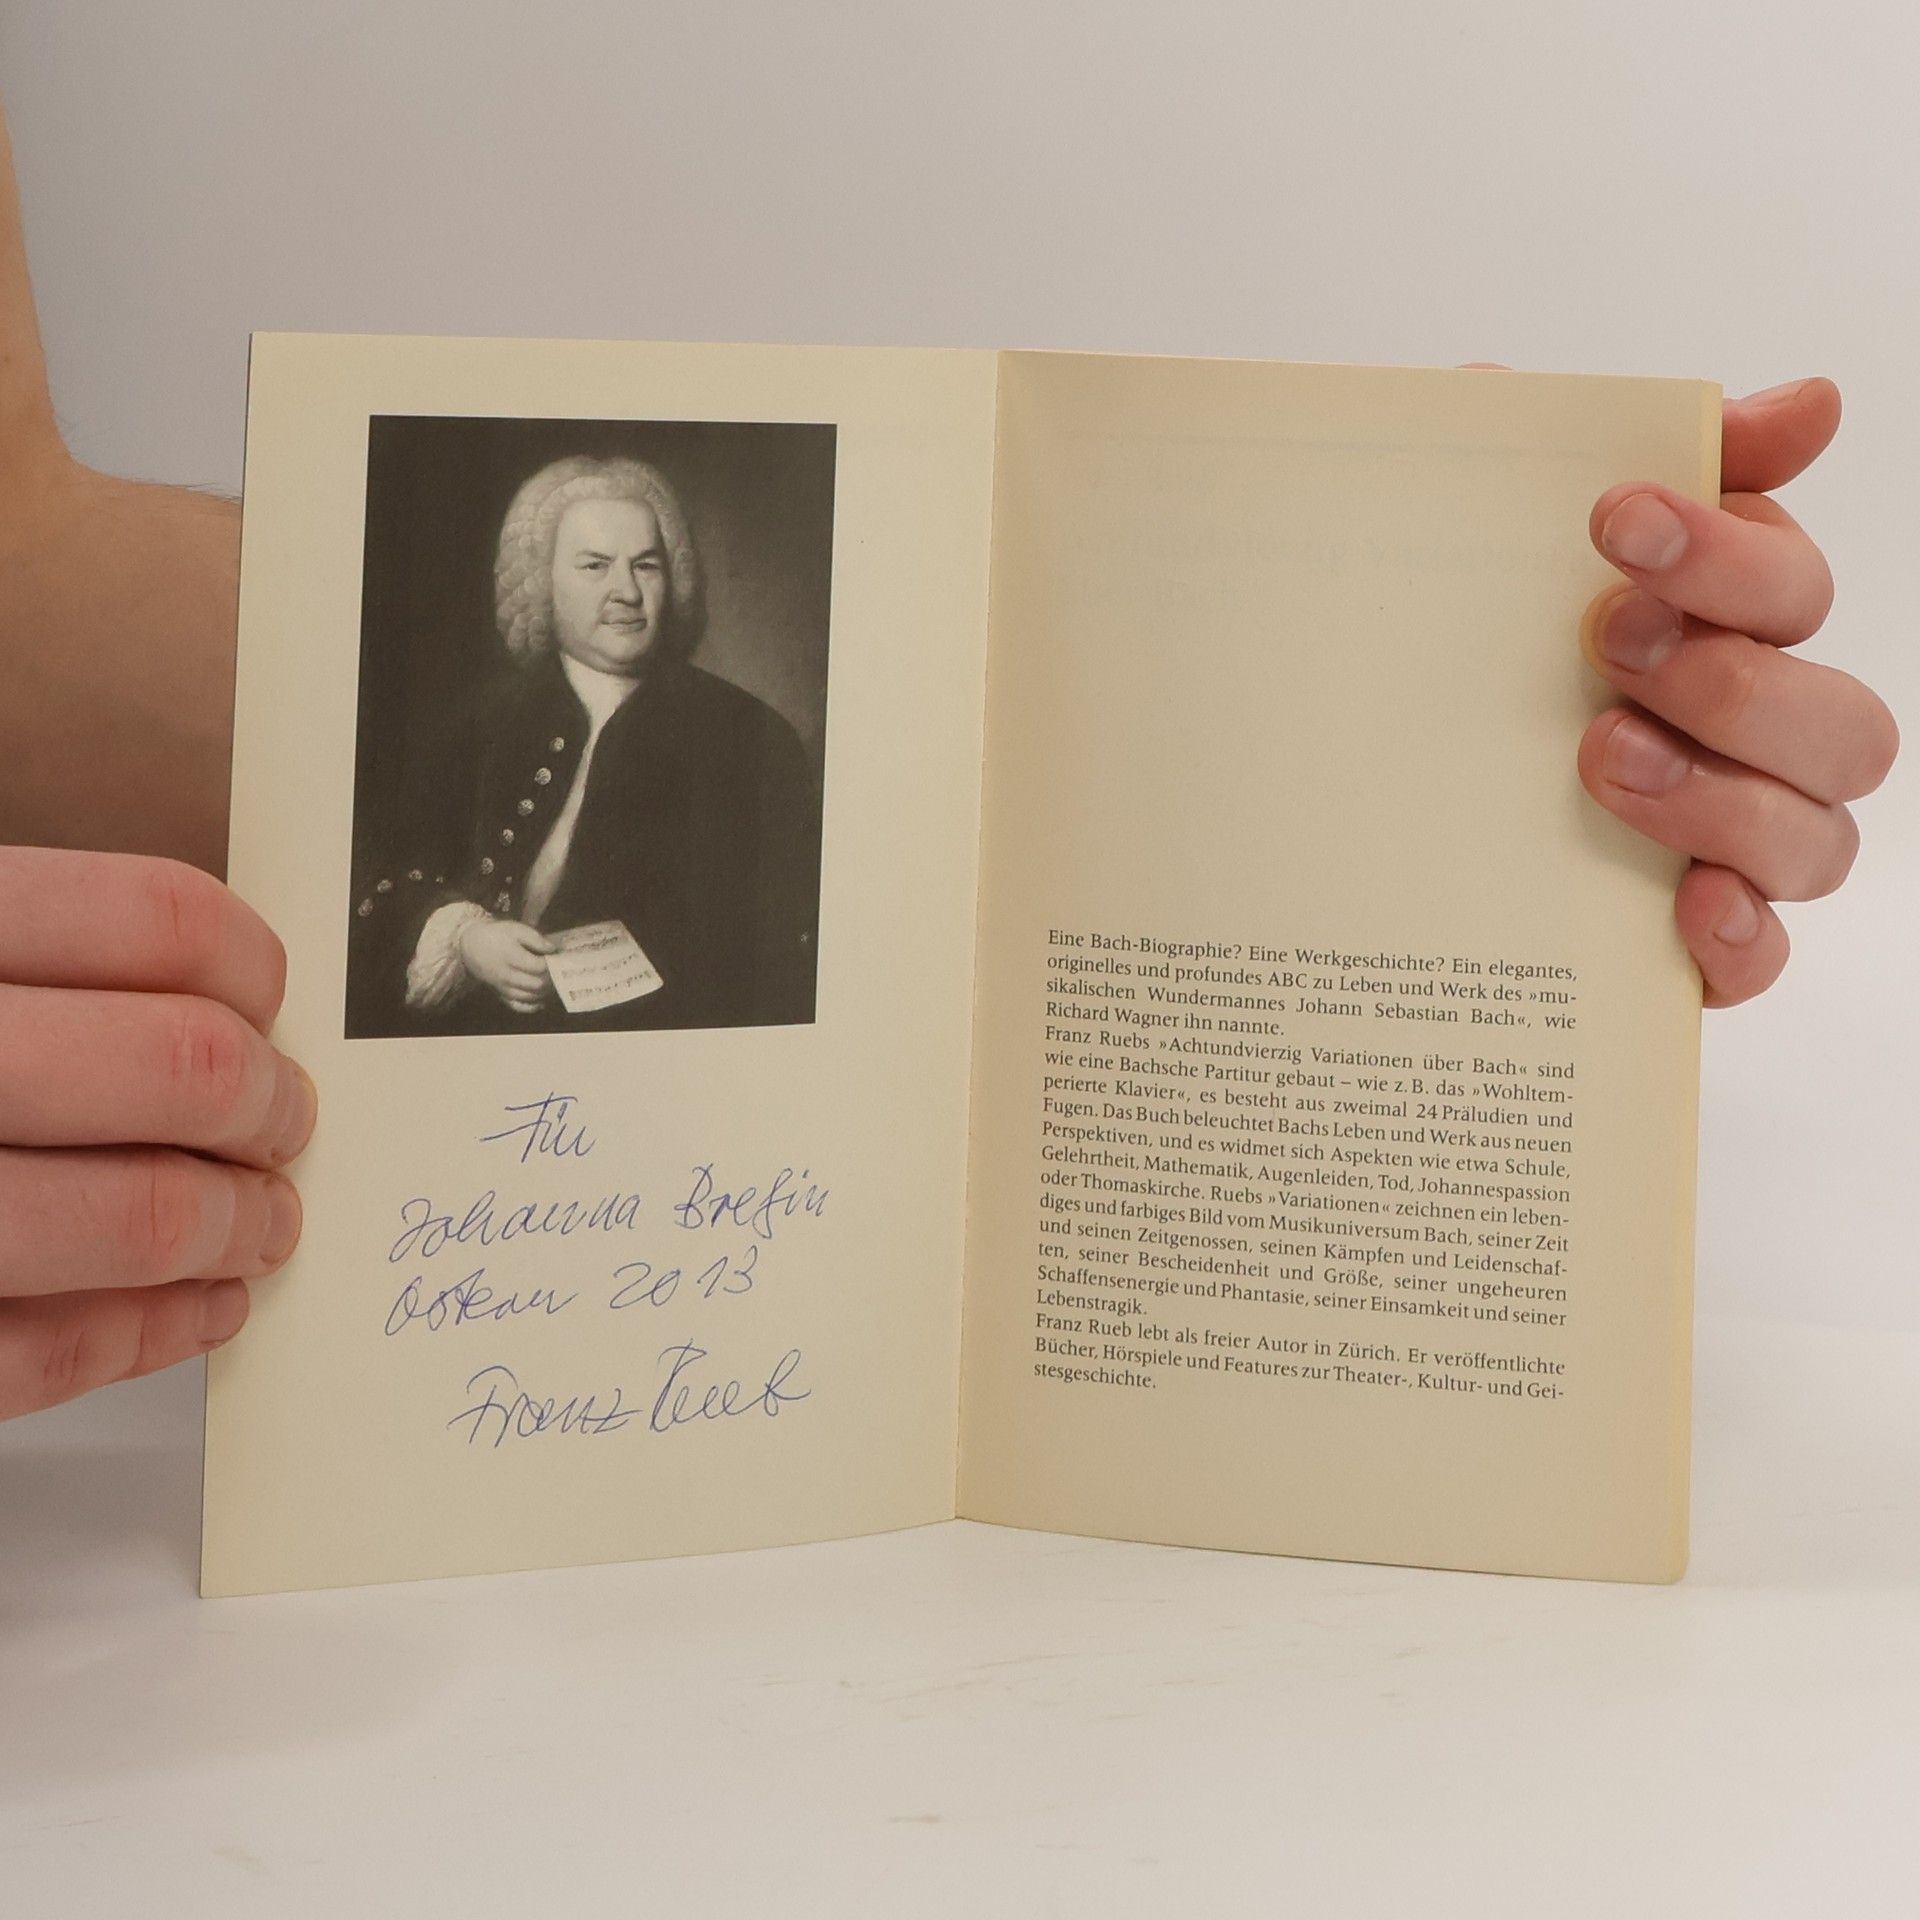 Für
Johanna Bregin
Ostern 2013
Franz Rueb
Eine Bach-Biographie? Eine Werkgeschichte? Ein elegantes,
originelles und profundes ABC zu Leben und Werk des »mu-
sikalischen Wundermannes Johann Sebastian Bach«, wie
Richard Wagner ihn nannte.
Franz Ruebs »Achtundvierzig Variationen über Bach« sind
wie eine Bachsche Partitur gebaut – wie z. B. das »Wohltem-
perierte Klavier«, es besteht aus zweimal 24 Präludien und
Fugen. Das Buch beleuchtet Bachs Leben und Werk aus neuen
Perspektiven, und es widmet sich Aspekten wie etwa Schule,
Gelehrtheit, Mathematik, Augenleiden, Tod, Johannespassion
oder Thomaskirche. Ruebs »Variationen« zeichnen ein leben-
diges und farbiges Bild vom Musikuniversum Bach, seiner Zeit
und seinen Zeitgenossen, seinen Kämpfen und Leidenschaf-
ten, seiner Bescheidenheit und Größe, seiner ungeheuren
Schaffensenergie und Phantasie, seiner Einsamkeit und seiner
Lebenstragik.
Franz Rueb lebt als freier Autor in Zürich. Er veröffentlichte
Bücher, Hörspiele und Features zur Theater-, Kultur- und Gei-
stesgeschichte.